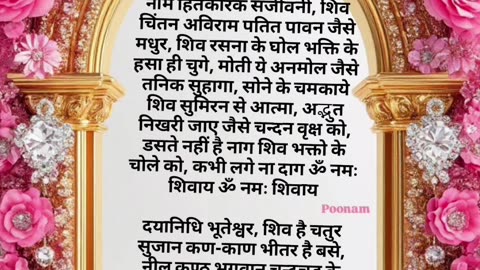 नाम हितकारक संजीवनी, शिव
चिंतन अविराम पतित पावन जैसे
मधुर, शिव रसना के घोल भक्ति के
हंसा ही चुगे, मोती ये अनमोल जैसे
तनिक सुहागा, सोने के चमकाये
शिव सुमिरन से आत्मा, अद्भुत
निखरी जाए जैसे चन्दन वृक्ष को,
डसते नहीं है नाग शिव भक्तो के
चोले को, कभी लगे ना दाग ॐ नमः
शिवाय ॐ नमः शिवाय
Poonam
दयानिधि भूतेश्वर, शिव है चतुर
सुजान कण-काण भीतर है बसे,
नील कण्ठ भगवान चन्द्रचूड के